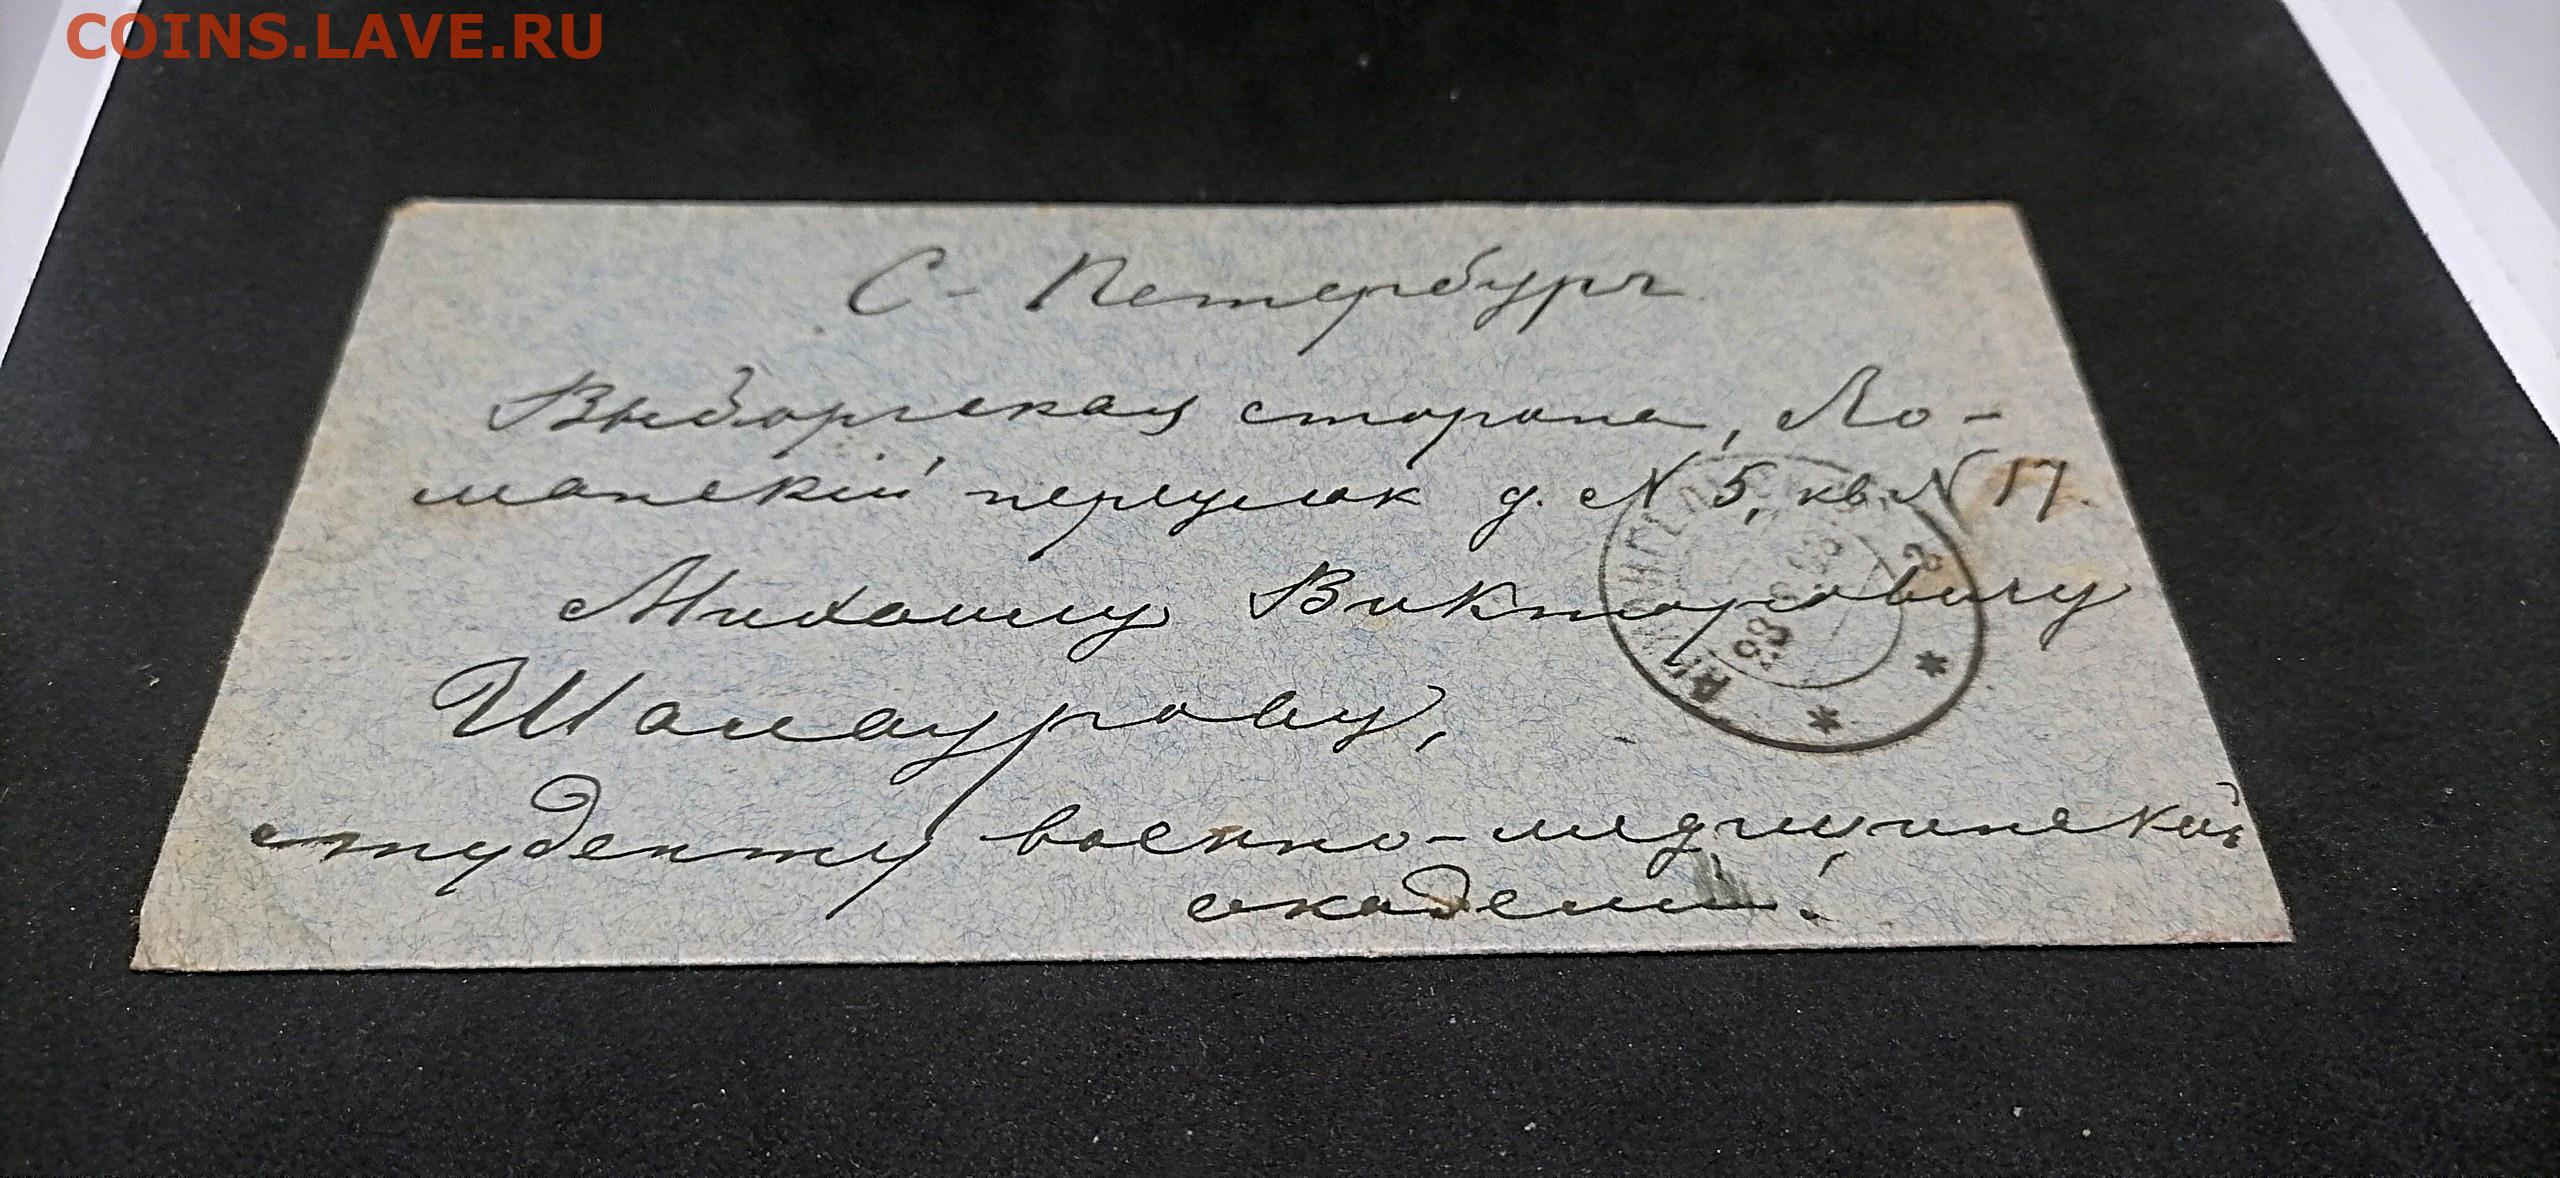 COINS.LAVE.RU
С-Петербург
Выборгская сторона, Ло-
манскій переулок д. N 5, кв. N 17.
Михаилу Викторовичу
Шамаурову,
студенту военно-медицинской
академіи.